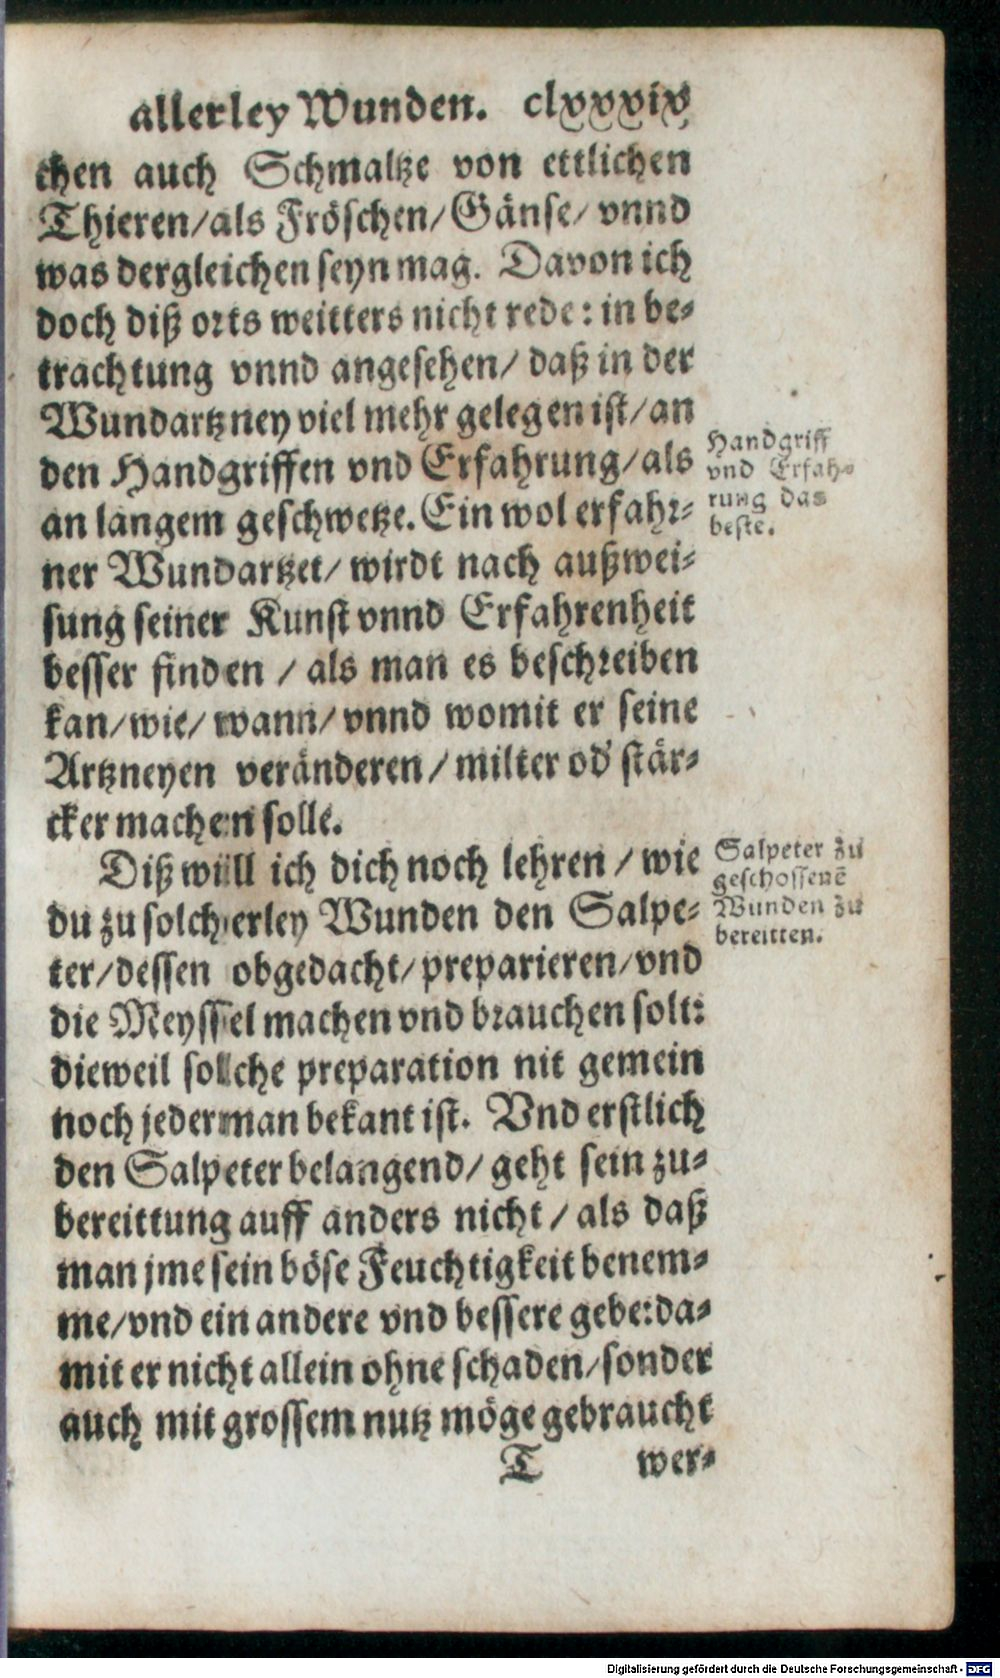 allerley Wunden. clxxxix
chen auch Schmaltze von ettlichen
Thieren/als Fröschen/Gänse/ vnnd
was dergleichen seyn mag. Davon ich
doch diß orts weitters nicht rede: in be-
trachtung vnnd angesehen/ daß in der
Wundartzney viel mehr gelegen ist/an
den Handgriffen vnd Erfahrung/als
an langem geschwetze. Ein wol erfahr-
ner Wundartzet/ wirdt nach außwei-
sung seiner Kunst vnnd Erfahrenheit
besser finden / als man es beschreiben
kan/wie/ wann/ vnnd womit er seine
Artzneyen veränderen/ milter od' stär-
cker machen solle.
Handgriff
vnd Erfah-
rung das
beste.
Diß will ich dich noch lehren / wie
du zu solcherley Wunden den Salpe-
ter/dessen obgedacht/ preparieren/vnd
die Meyssel machen vnd brauchen solt:
dieweil solche preparation nit gemein
noch jederman bekant ist. Vnd erstlich
den Salpeter belangend/ geht sein zu-
bereittung auff anders nicht / als daß
man jme sein böse Feuchtigkeit benem-
me/vnd ein andere vnd bessere gebe:da-
mit er nicht allein ohne schaden/sonder
auch mit grossem nutz möge gebraucht
Salpeter zu
geschossenē
Wunden zu
bereitten.
T wer-
Digitalisierung gefördert durch die Deutsche Forschungsgemeinschaft - DFG